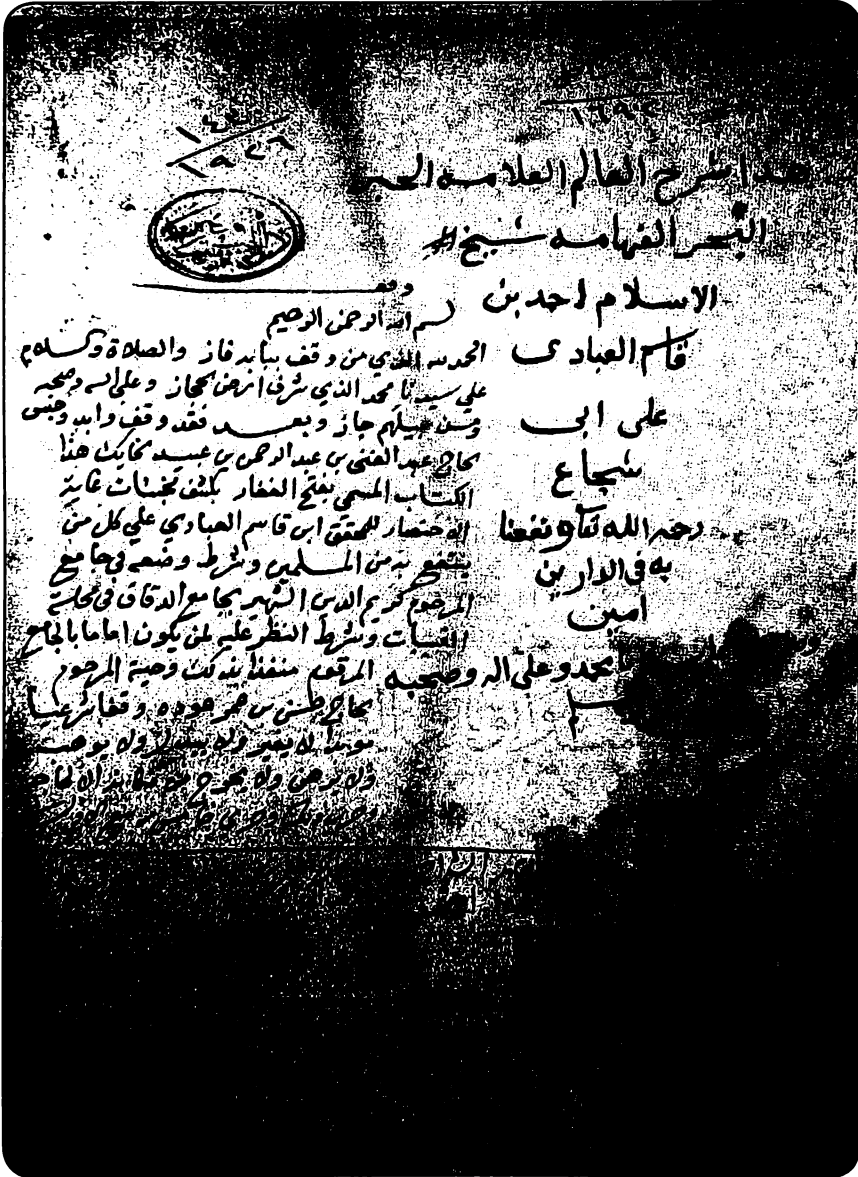 ١٦٩٤
هذا شرح العالم العلامه الحبر
البحر الفهامه شيخ
الاسلام احمد بن
قاسم العبادى
على ابى
شجاع
رحمه الله تعا ونفعنا
به فى الدارين
امين
بمحمد وعلى اله وصحبه
وقف
بسم الله الرحمن الرحيم
الحمد لله الذي من وقف ببابه فاز والصلاة والسلام
علي سيدنا محمد الذي شرف ارض الحجاز وعلى اله وصحبه
ومن جاز وبعد فقد وقف وابد وحبس
الحاج عبد الغني بن عبد الرحمن بن عبيد هذا
الكتاب المسمى بفتح الغفار بكشف مخبئات غاية
الاختصار للمحقق ابن قاسم العبادي علي كل من
ينتفع به من المسلمين وشرط وضعه في جامع
المرحوم كريم الدين الشهير بجامع الدقاق في محلة
القبيبات وشرط النظر عليه لمن يكون اماما بالجامع
المرقوم منفذا بذلك وصية المرحوم
الحاج حسن بن عمر حوده وقفا شرعيا
مؤبدا لا يغير ولا يبدل ولا يوهب
ولا يرهن ولا يخرج من مكانه الا